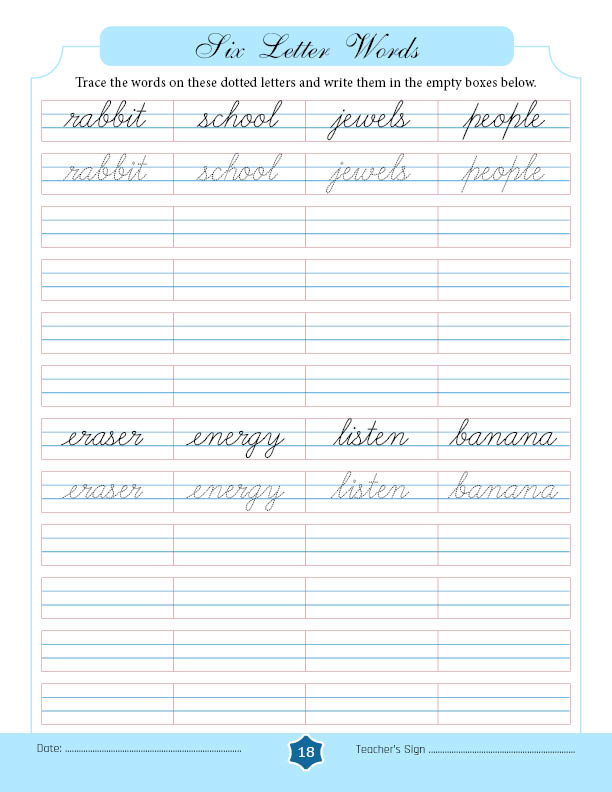 Six Letter Words
Trace the words on these dotted letters and write them in the empty boxes below.
rabbit school jewels people
rabbit school jewels people
eraser energy listen banana
eraser energy listen banana
Date: ........................................................ 18 Teacher's Sign ........................................................